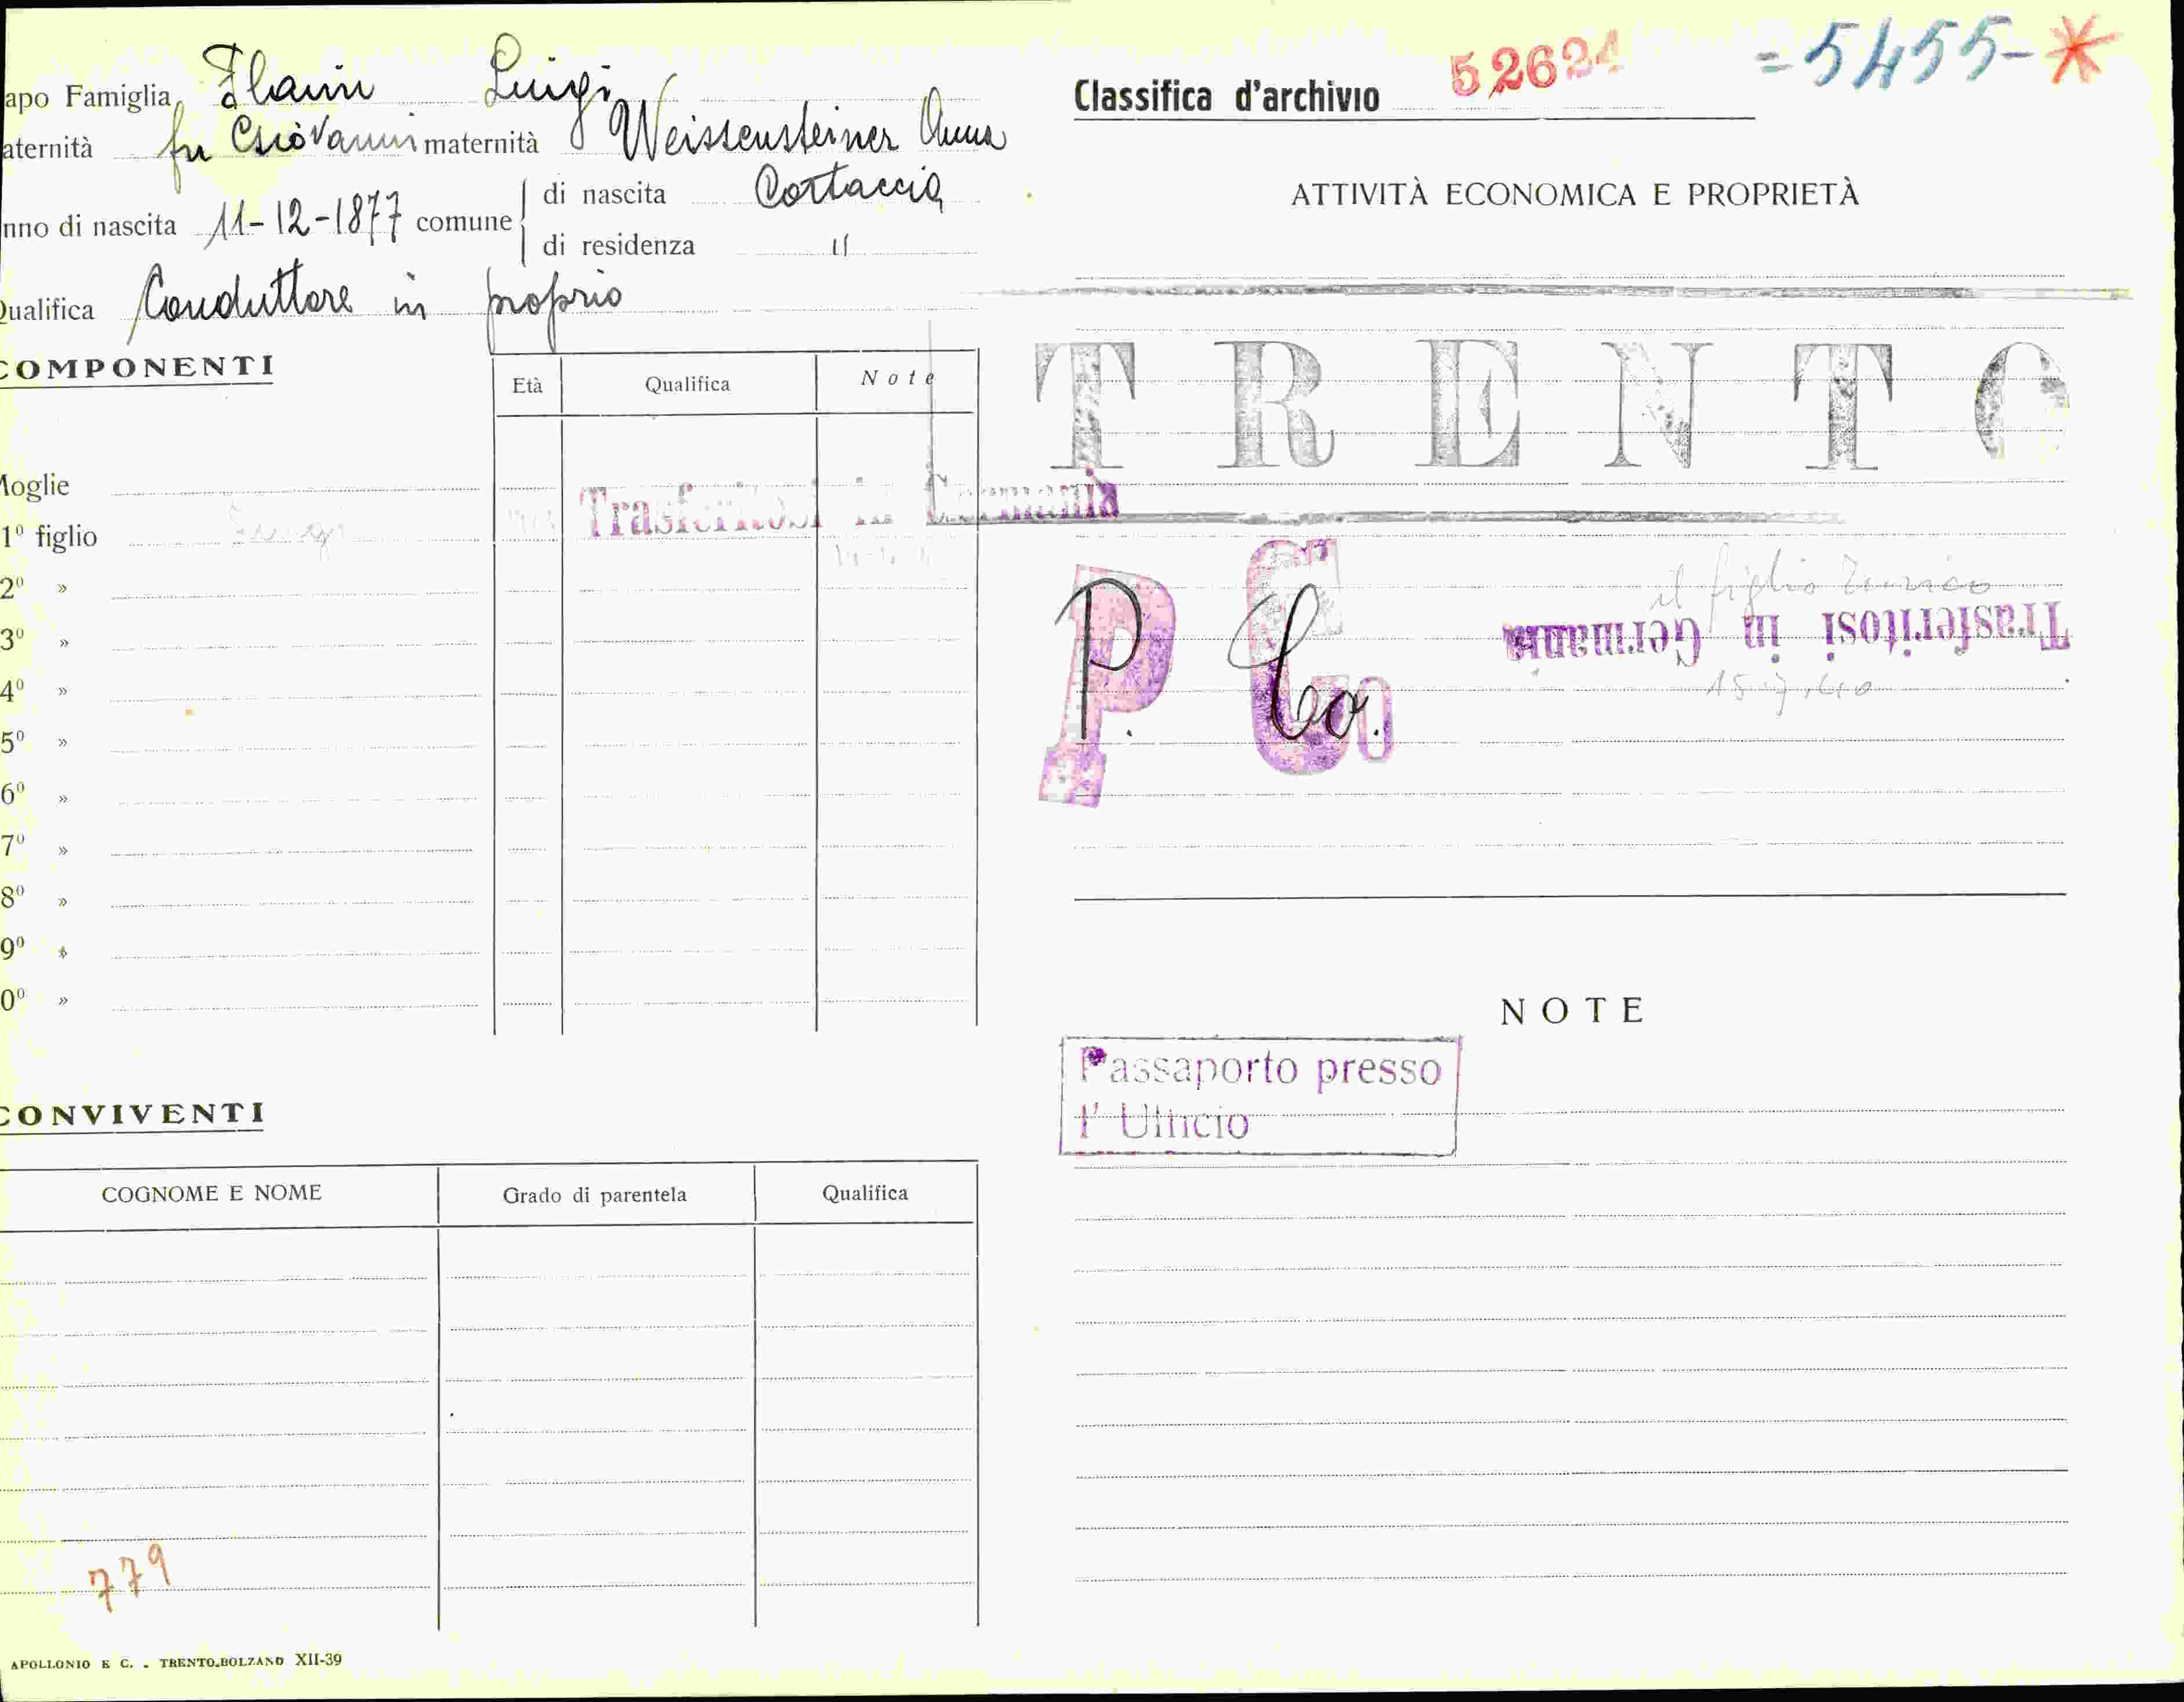 apo Famiglia Flaim Luigi
aternità fu Giovanni maternità Weissensteiner Anna
nno di nascita 11-12-1877 comune di nascita Cortaccia
di residenza "
Qualifica Conduttore in proprio
COMPONENTI
Età Qualifica Note
Moglie
1º figlio Luigi Trasferitosi in Germania
2º »
3º »
4º »
5º »
6º »
7º »
8º »
9º »
0º »
CONVIVENTI
COGNOME E NOME Grado di parentela Qualifica
779
APOLLONIO E C. - TRENTO-BOLZANO XII-39
Classifica d'archivio 52624 =5455-*
ATTIVITÀ ECONOMICA E PROPRIETÀ
TRENTO
il figlio Enrico
Trasferitosi in Germania
P. Co.
NOTE
Passaporto presso
l' Ufficio